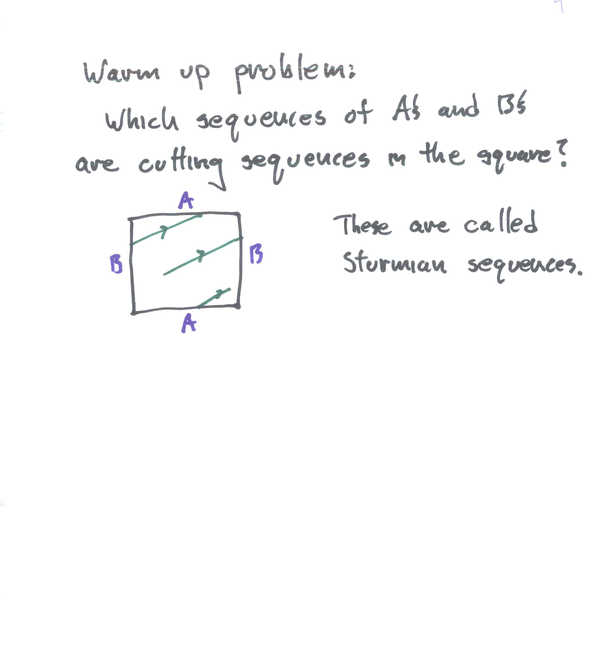 Warm up problem:
Which sequences of A's and B's
are cutting sequences in the square?
A
These are called
B
B
Sturmian sequences.
A